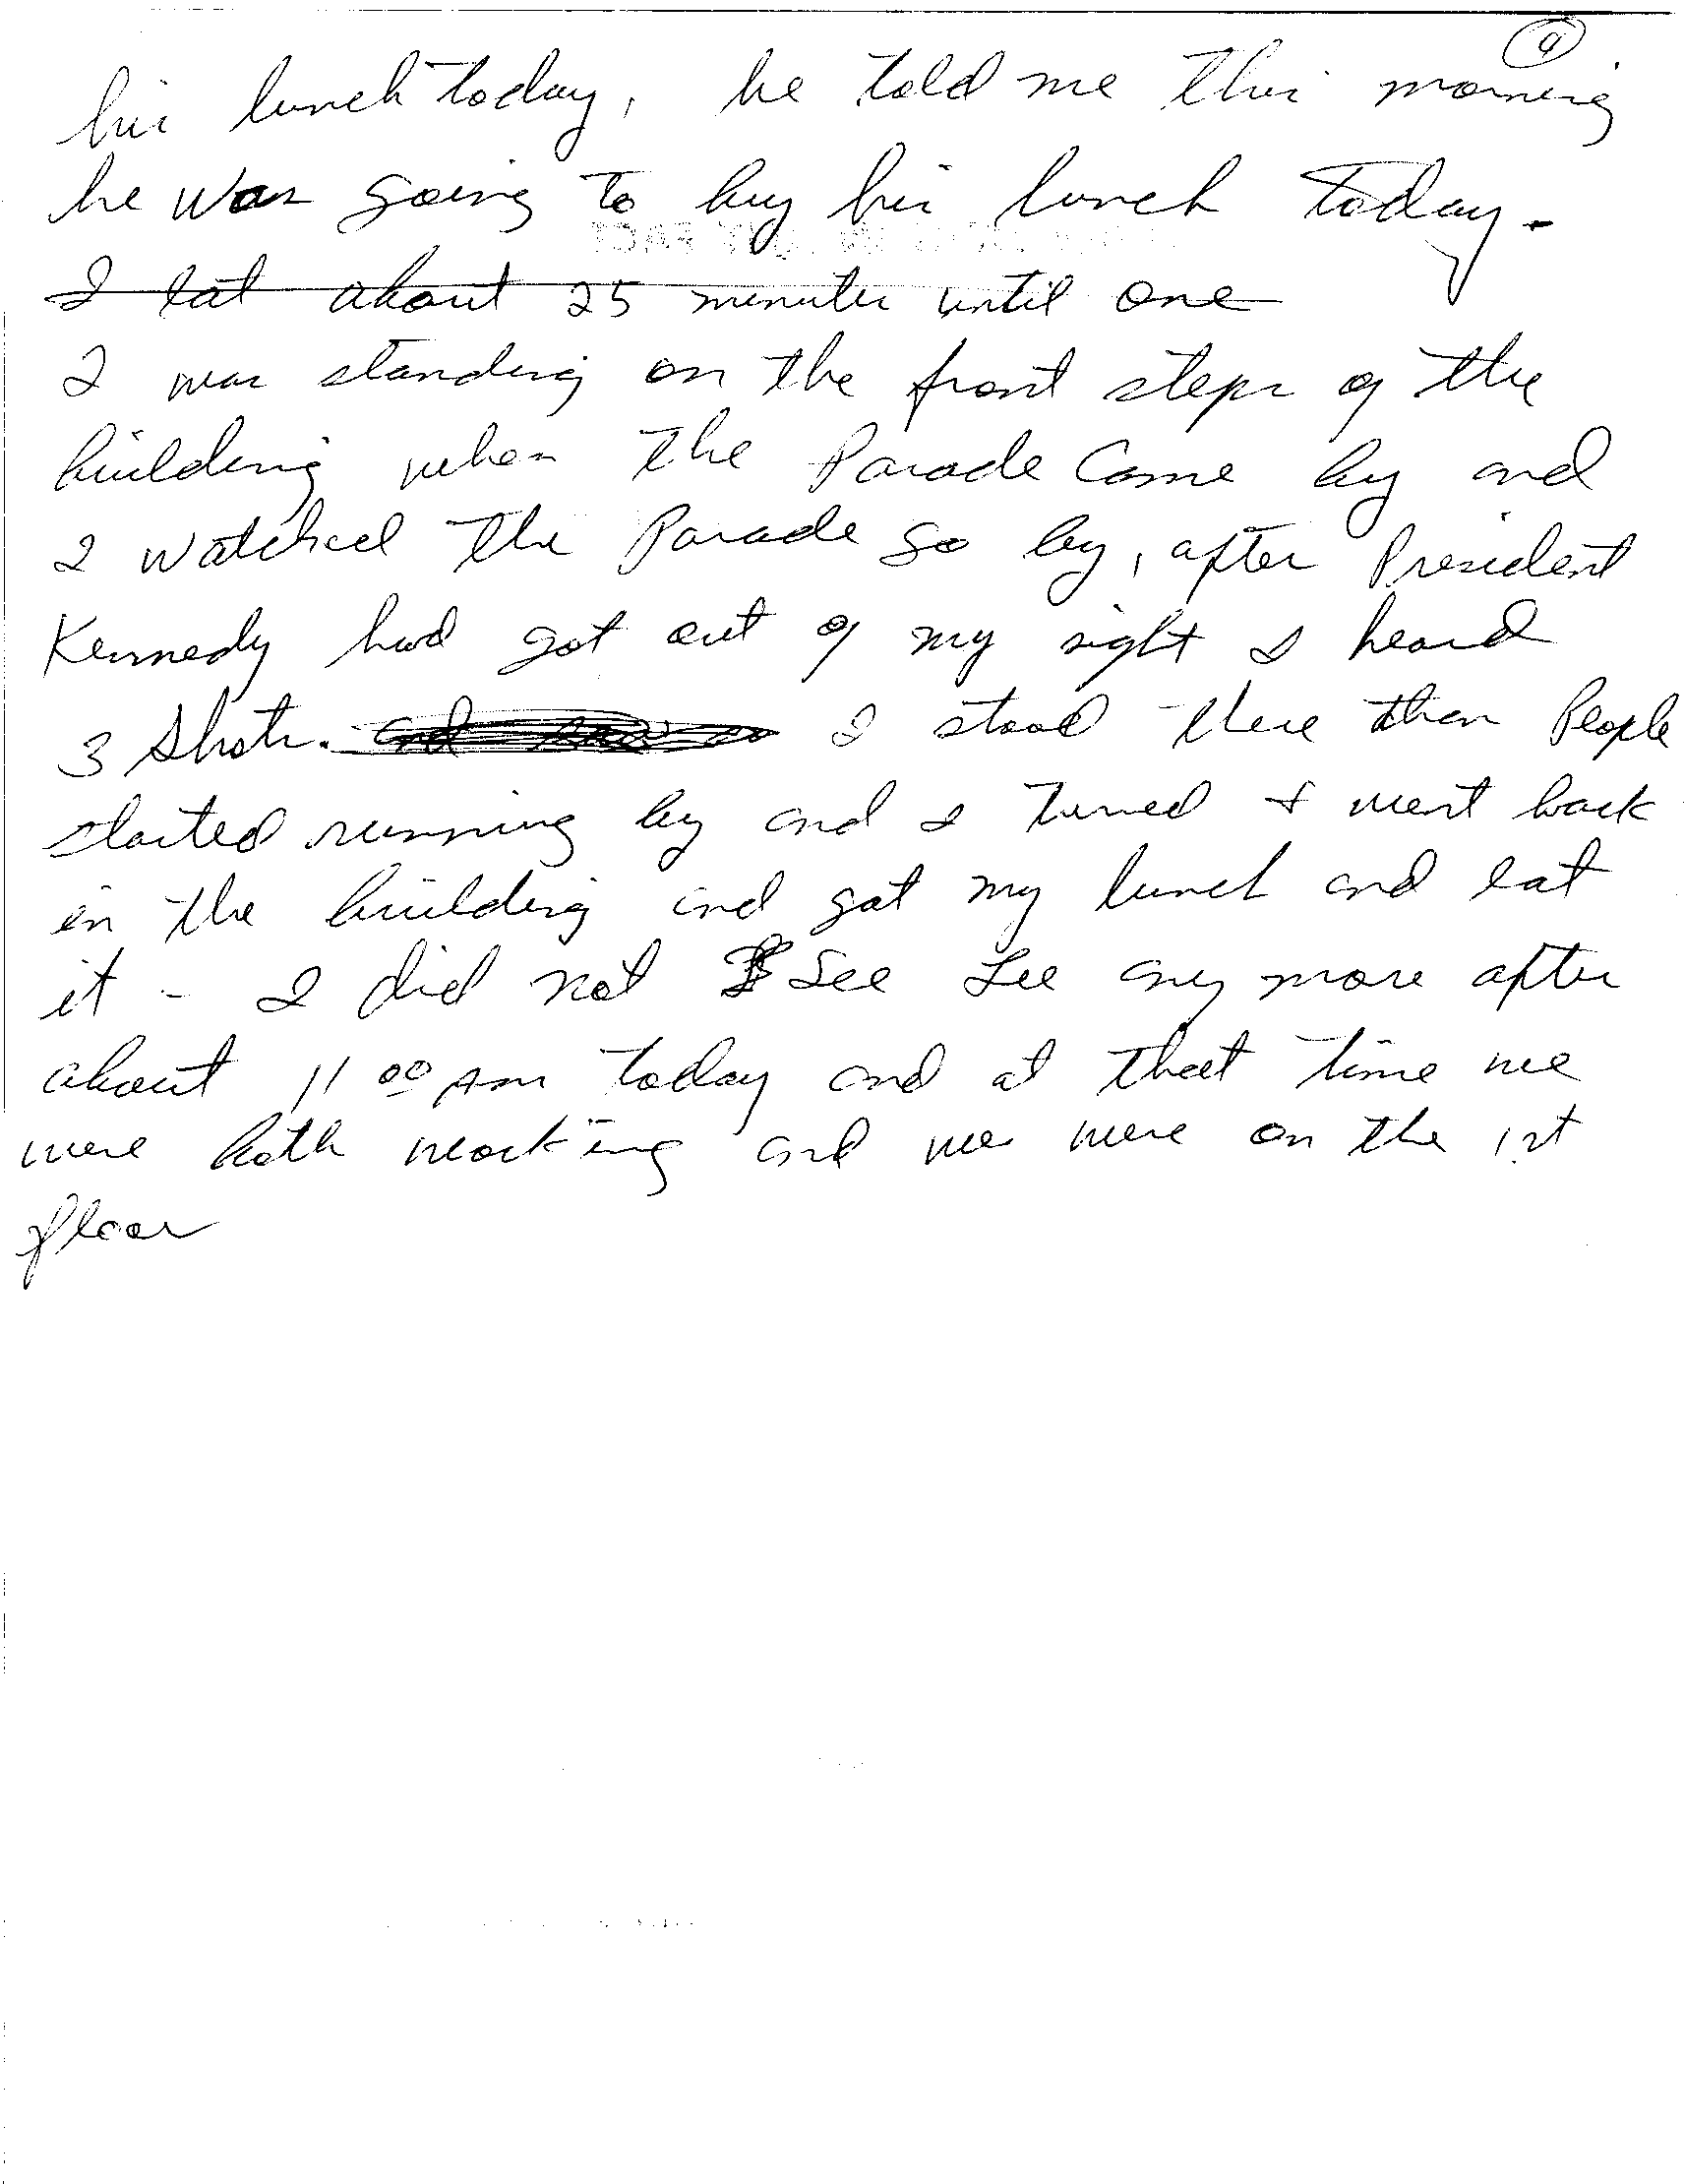 4
his lunch today, he told me this morning
he was going to buy his lunch today.
I eat about 25 minutes until one
I was standing on the front steps of the
building when the Parade Come by and
I watched the Parade go by, after President
Kennedy had got out of my sight I heard
3 shots. and I stood there then People
started running by and I turned & went back
in the building and got my lunch and eat
it - I did not See Lee any more after
about 11 00 AM today and at that time we
were both working and we were on the 1st
floor